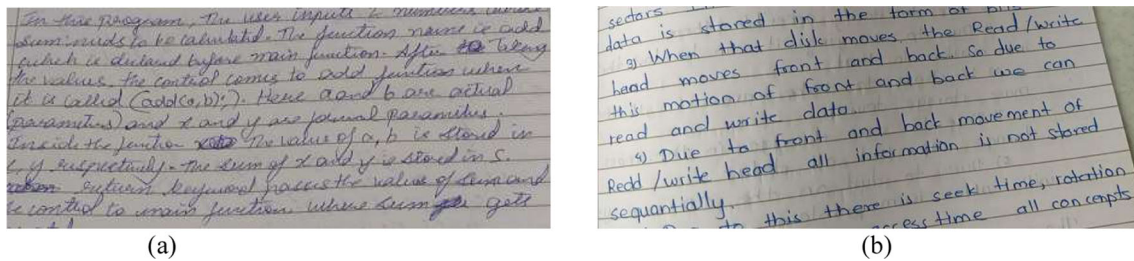 In this program, the user inputs 2 numbers whose
sum needs to be calculated. The function name is add
which is declared before main function. After taking
the values, the control comes to add function where
it is called (add(a,b);). Here a and b are actual
parameters and x and y are formal parameters.
Inside the function the value of a, b is stored in
x, y respectively. The sum of x and y is stored in S.
return keyword passes the value of sum and
control to main function where sum gets
(a)
sectors
data is stored in the form of
3) When that disk moves the Read/write
head moves front and back. So due to
this motion of front and back we can
read and write data.
4) Due to front and back movement of
Read/write head all information is not stored
sequantially.
to this there is seek time, rotation
time all concenpts
(b)